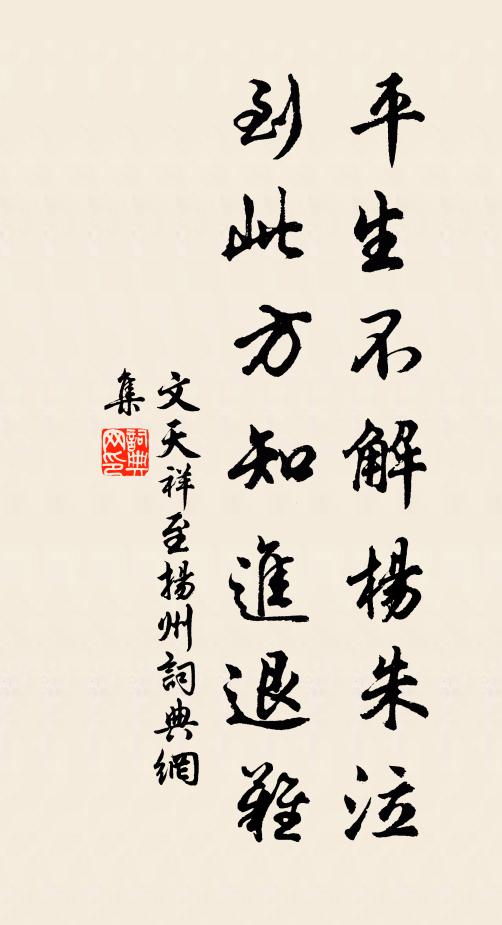 平生不解楊朱泣
到此方知進退難
文天祥至揚州詞典網
集
詞典
网印